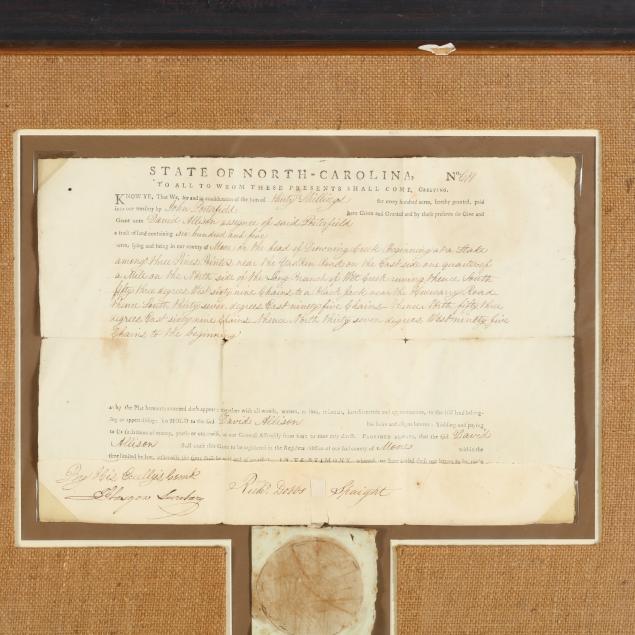 STATE OF NORTH-CAROLINA, No.
TO ALL TO WHOM THESE PRESENTS SHALL COME, GREETING.
KNOW YE, That We, for and in consideration of the sum of thirty Shillings for every hundred acres, hereby granted, paid
into our treasury by John Porterfield have Given and Granted and by these presents do Give and
Grant unto David Allison assignee of said Porterfield
a tract of land containing six hundred and five
acres, lying and being in our county of Moore on the head of Drowning Creek Beginning at a Stake
among three Pines near the Yadkin Road on the East side one quarter of
a Mile on the North side of the Long branch of Wet Creek runing thence South
fifty three degrees West sixty nine Chains to a black Jack near the Road
thence South thirty seven degrees East ninety five Chains thence North fifty three
degrees East sixty nine Chains thence North thirty seven degrees West ninety five
Chains to the beginning
as by the Plat hereunto annexed doth appear; together with all woods, waters, mines, minerals, hereditaments and appurtenances, to the said land belong-
ing or appertaining: To HOLD to the said David Allison his heirs and assigns forever. Yielding and paying
to Us such sums of money, yearly or otherwise, as our General Assembly from time to time may direct. PROVIDED ALWAYS, that the said David
Allison shall cause this Grant to be registered in the Register's Office of our said county of Moore within the
IN TESTIMONY whereof, we have caused these our letters to be made
By His Command Richd. Dobbs Spaight
J Glasgow Secretary